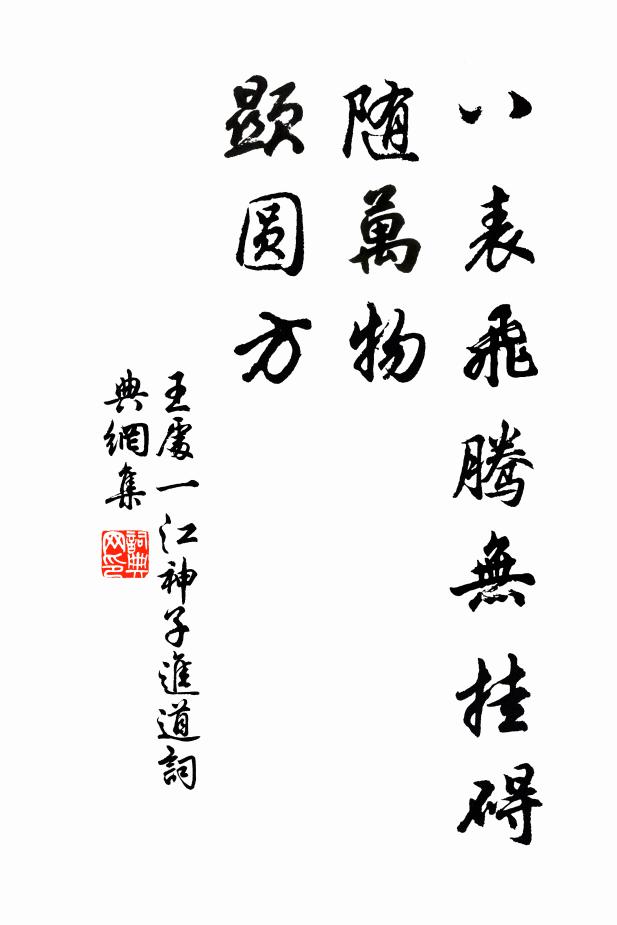 八表飛騰無挂碍
随萬物
顕圆方
王處一江神子進道詞
典網集
詞典网印